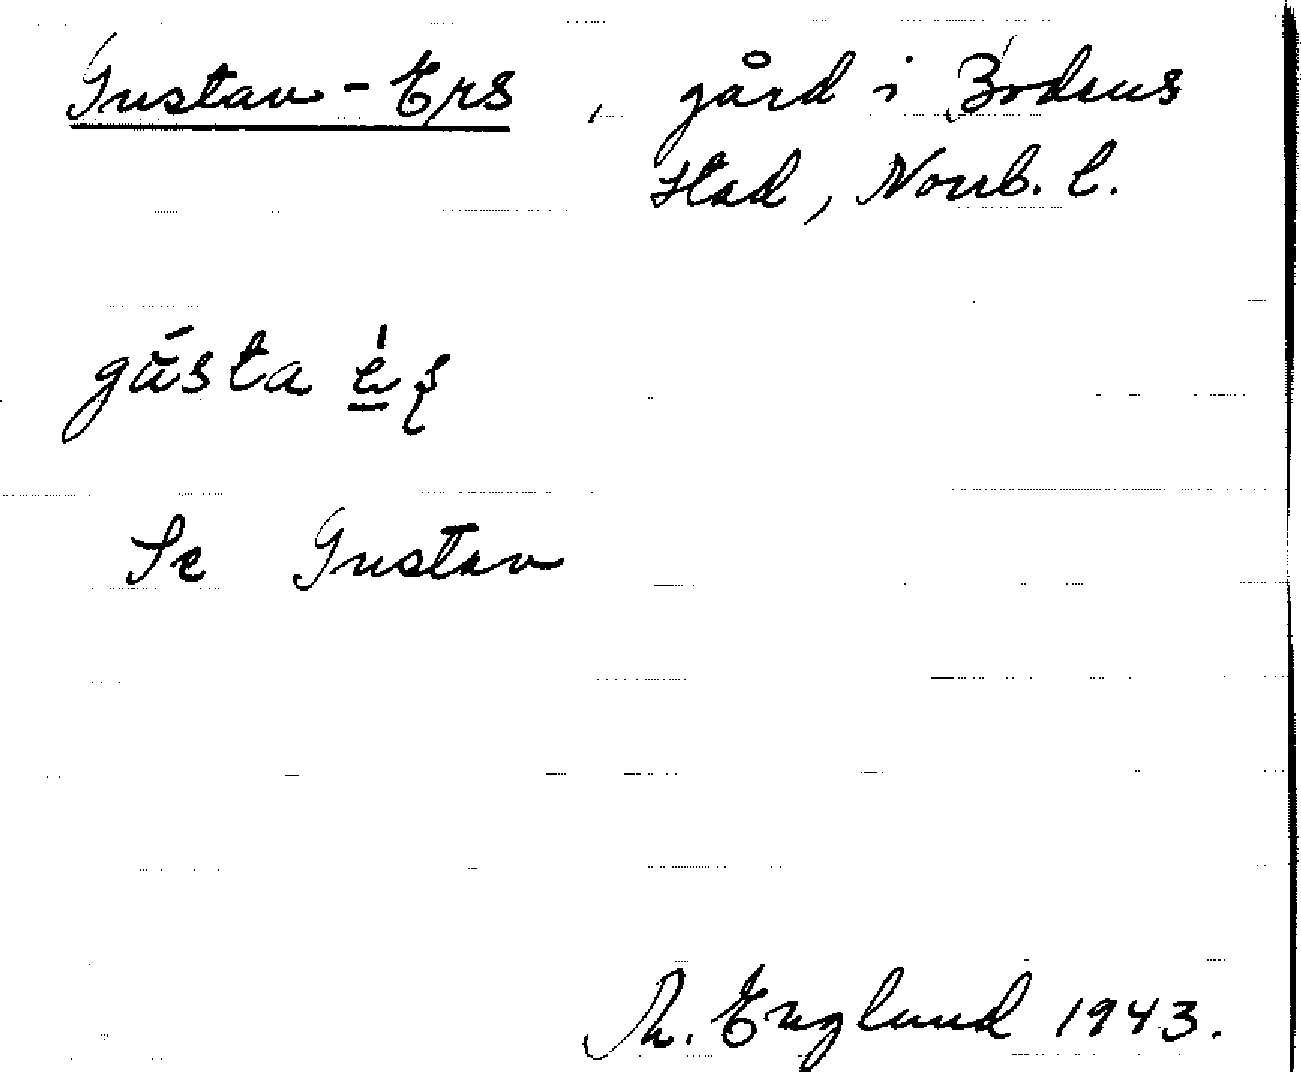 Gustav-Ers, gård i Bodens
stad, Norrb. l.
Se Gustav
M. Englund 1943.